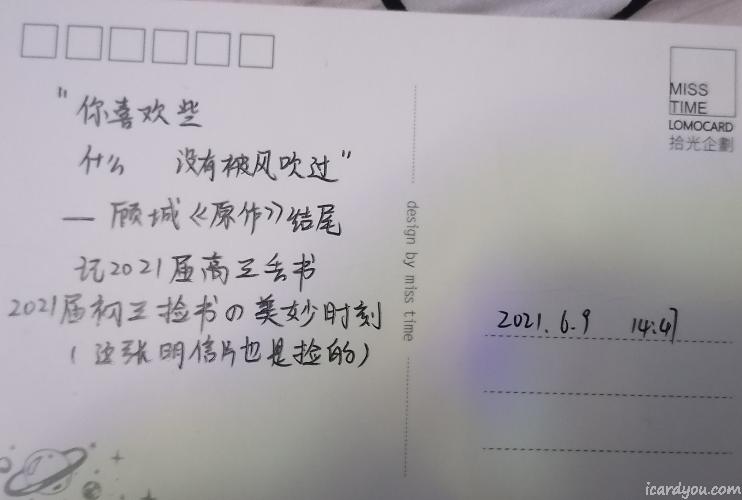 “你喜欢些
什么 没有被风吹过”
— 顾城《原作》结尾
记2021届高三丢书
2021届初三捡书の美妙时刻
(这张明信片也是捡的)
design by miss time
MISS
TIME
LOMOCARD
拾光企劃
2021.6.9 14:47
icardyou.com